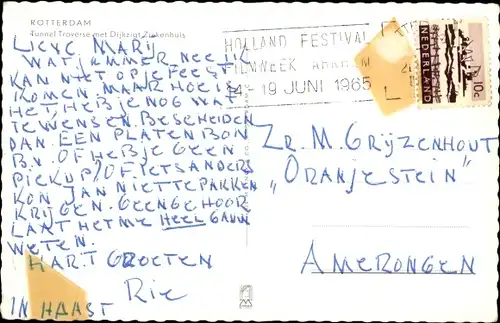 ROTTERDAM
Tunnel Traverse met Dijkzigt Ziekenhuis
HOLLAND FESTIVAL
FILMWEEK ARNHEM
14-19 JUNI 1965
NEDERLAND
10c
LIEVE MARIJ
WAT JAMMER NEE IK
KAN NIET OP JE FEEST
KOMEN MAAR HOE IS
HET, HEB JE NOG WAT
TE WENSEN. BESCHEIDEN
DAN EEN PLATENBON
B.V. OF HEB JE GEEN
PICKUP/OF IETS ANDERS
KON JAN NIET TE PAKKEN
KRIJGEN. GEEN GEHOOR
LAAT HET ME HEEL GAUW
WETEN.
HART. GROETEN
Rie
IN HAAST
ZR. M. GRIJZENHOUT
„ORANJESTEIN"
AMERONGEN